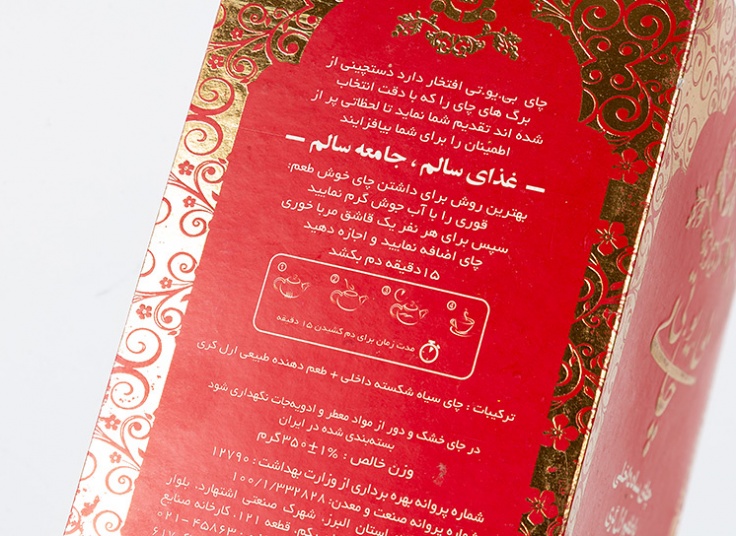 چای بی.یو.تی افتخار دارد دستچینی از
برگ های چای را که با دقت انتخاب
شده اند تقدیم شما نماید تا لحظاتی پر از
اطمینان را برای شما بیافزایند
– غذای سالم ، جامعه سالم –
بهترین روش برای داشتن چای خوش طعم:
قوری را با آب جوش گرم نمایید
سپس برای هر نفر یک قاشق مربا خوری
چای اضافه نمایید و اجازه دهید
۱۵ دقیقه دم بکشد
۱ ۲ ۳ ۴
مدت زمان برای دم کشیدن ۱۵ دقیقه
ترکیبات : چای سیاه شکسته داخلی + طعم دهنده طبیعی ارل گری
در جای خشک و دور از مواد معطر و ادویه‌جات نگهداری شود
بسته‌بندی شده در ایران
وزن خالص : ۱%±۳۵۰گرم
شماره پروانه بهره برداری از وزارت بهداشت : ۱۲۷۹۰
شماره پروانه صنعت و معدن: ۱۰۰/۱/۳۳۲۸۲۸
استان البرز، شهرک صنعتی اشتهارد، بلوار
یکم، قطعه ۱۲۱، کارخانه صنایع
۰۲۱-۴۵۸۶۳